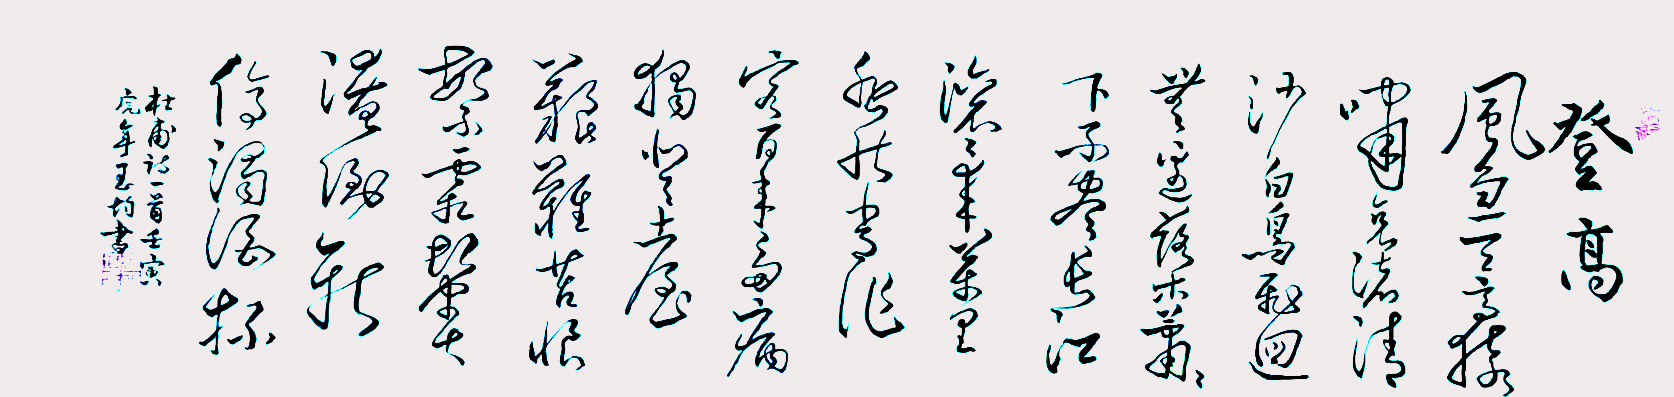 登高
風急天高猿
嘯哀渚清
沙白鳥飛迴
無邊落木蕭〻
下不盡長江
滾〻來萬里
悲秋常作
客百年多病
獨登臺
艱難苦恨
繁霜鬢
潦倒新
停濁酒杯
杜甫詩一首壬寅
虎年玉均書